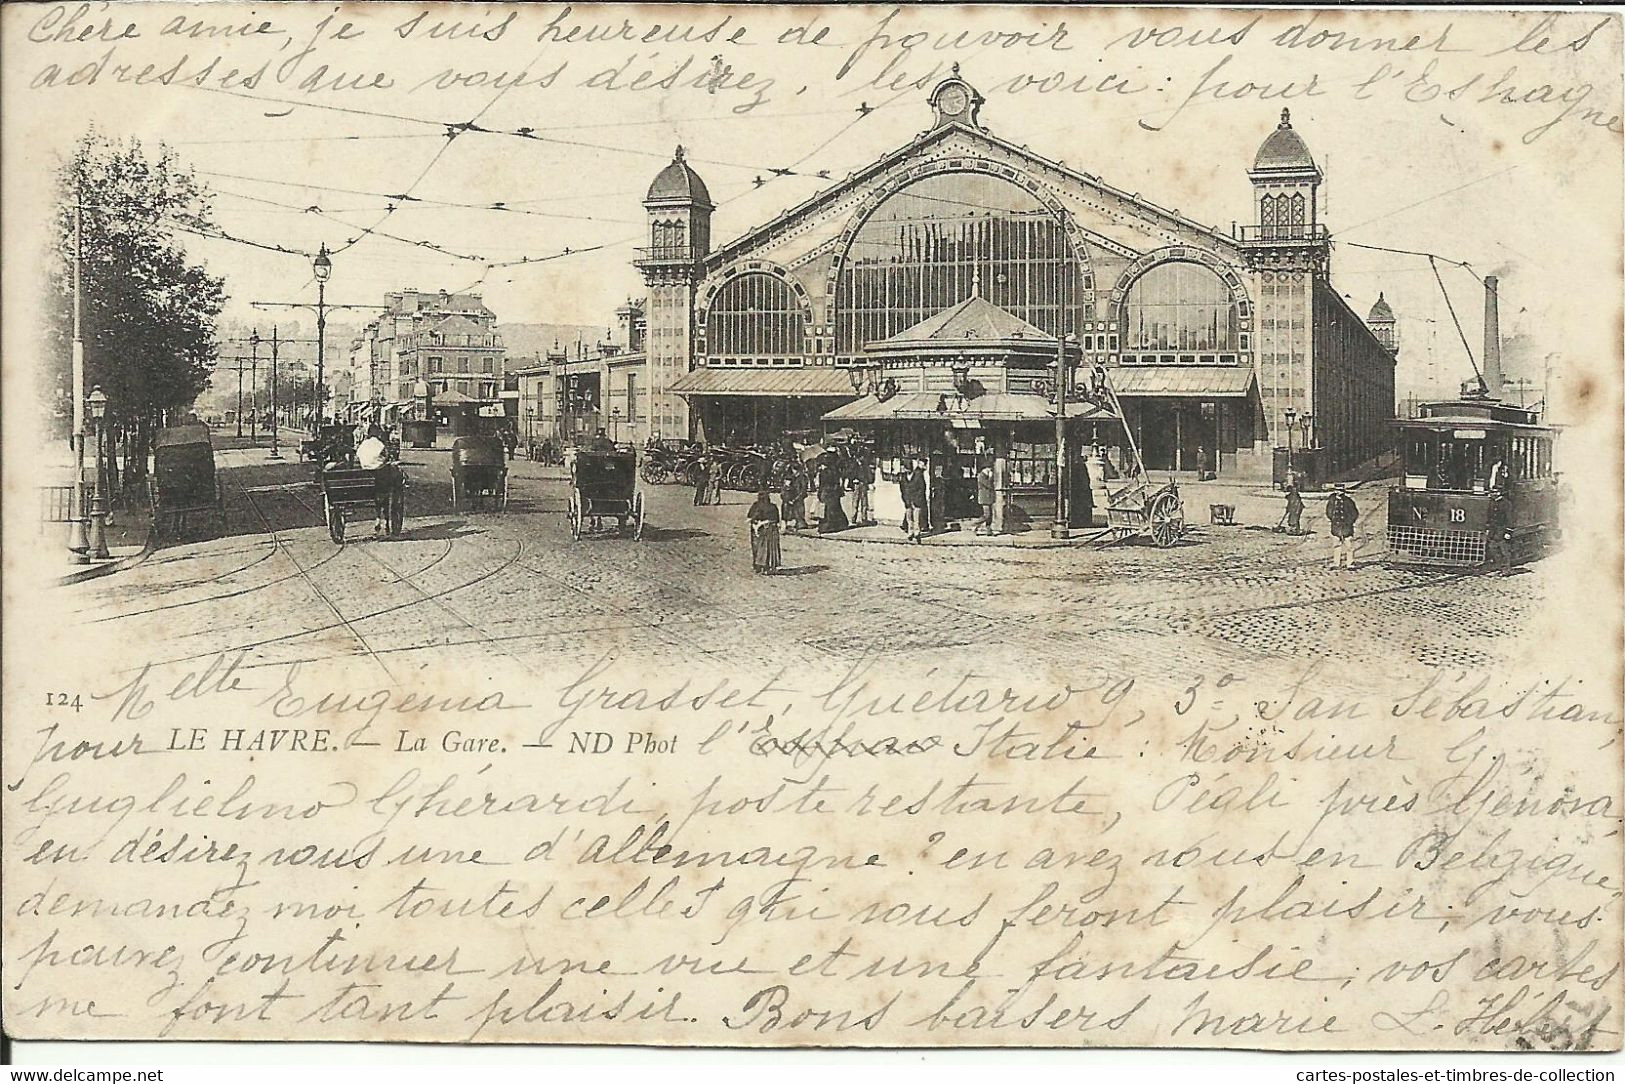 Chère amie, je suis heureuse de pouvoir vous donner les
adresses que vous désirez, les voici: pour l'Espagne
Nº 18
124 Melle Eugénia Grasset, Guétario 9, 3º, San Sébastian,
pour LE HAVRE. — La Gare. — ND Phot l'Espagne Italie: Monsieur G.
Guglielmo Ghérardi, poste restante, Pégli près Génova,
en désirez vous une d'Allemagne? en avez vous en Belgique,
demandez moi toutes celles qui vous feront plaisir; vous
pouvez continuer une vue et une fantaisie, vos cartes
me font tant plaisir. Bons baisers Marie L. Hébert
cartes-postales-et-timbres-de-collection